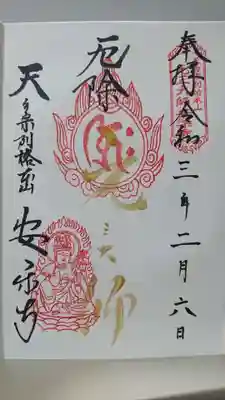 奉拝 令和三年二月六日
厄除
元三大師
天台宗別格本山
安楽寺